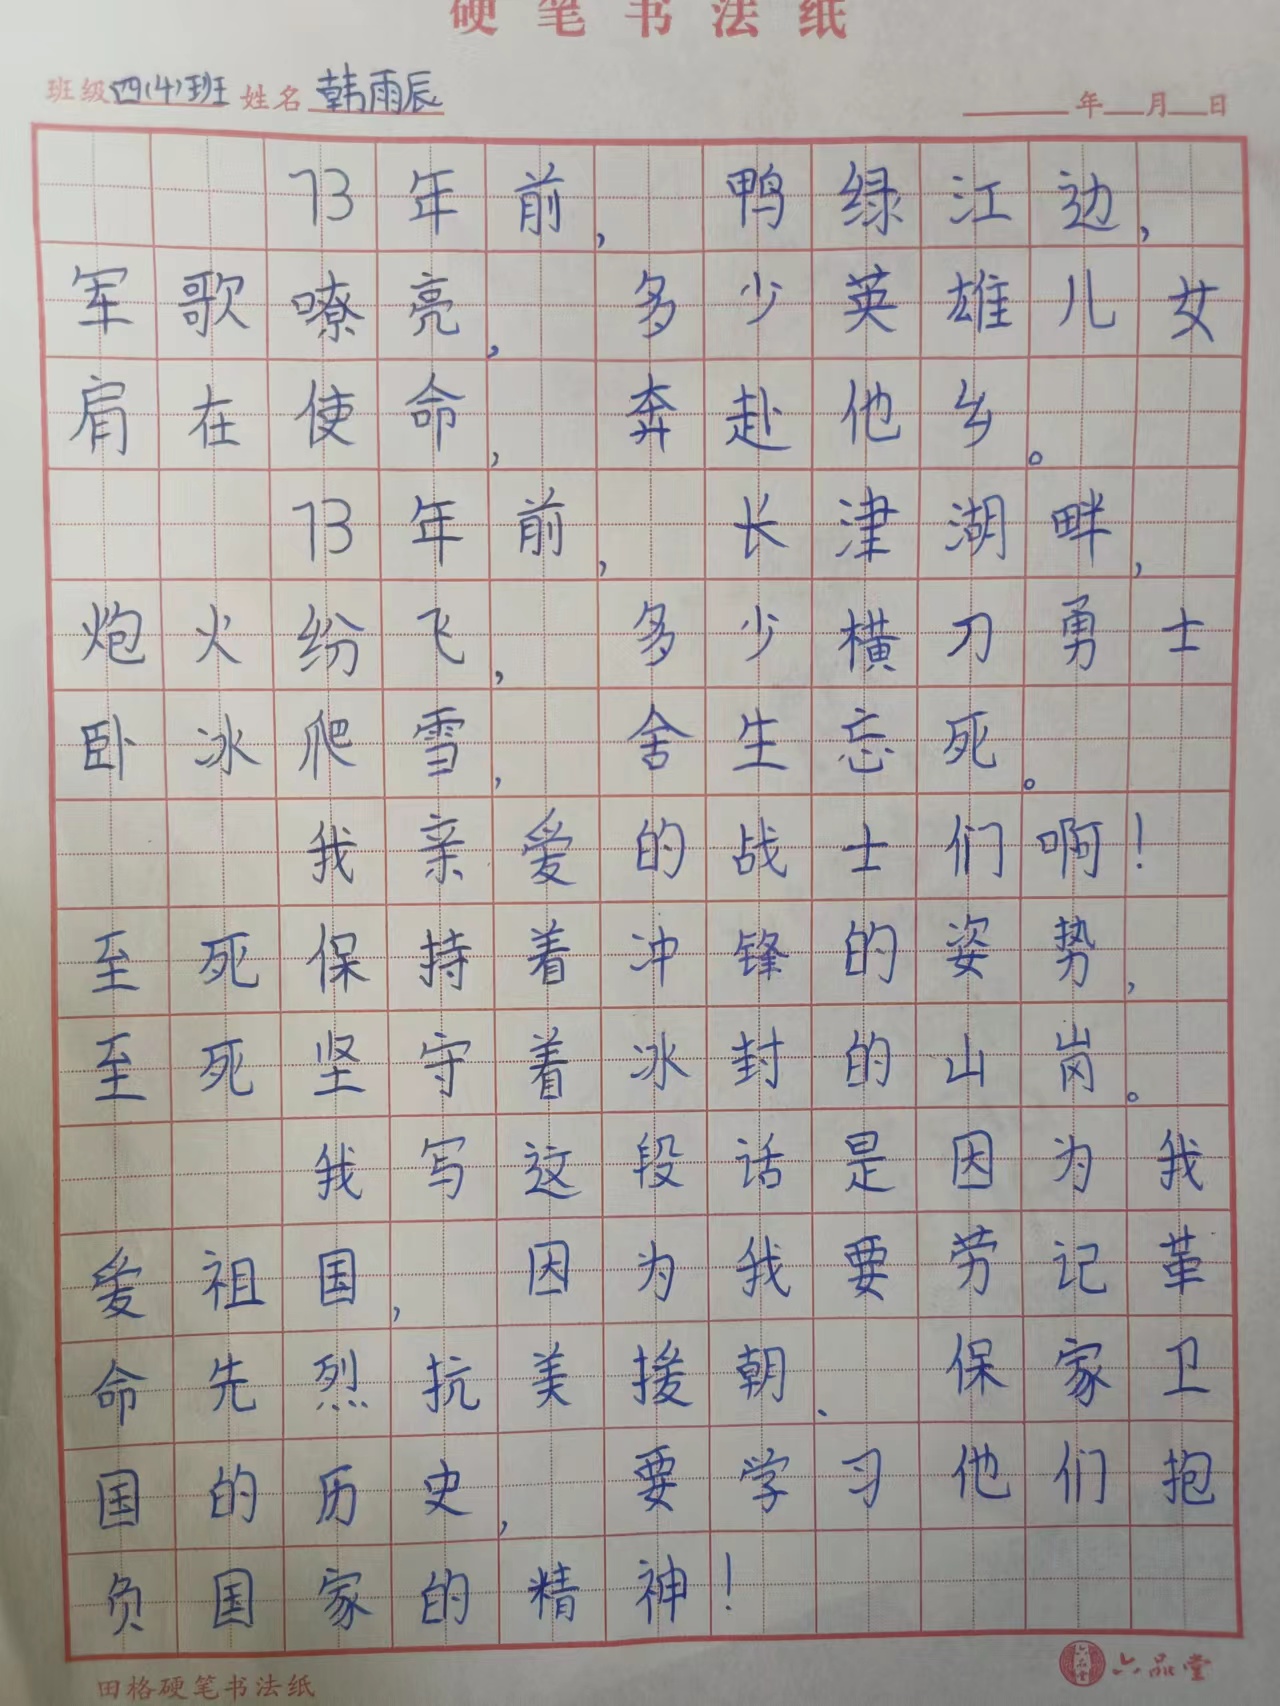 硬笔书法纸
班级四(4)班 姓名 韩雨辰 年 月 日
73年前，鸭绿江边，
军歌嘹亮，多少英雄儿女
肩在使命，奔赴他乡。
73年前，长津湖畔，
炮火纷飞，多少横刀勇士
卧冰爬雪，舍生忘死。
我亲爱的战士们啊！
至死保持着冲锋的姿势，
至死坚守着冰封的山岗。
我写这段话是因为我
爱祖国，因为我要劳记革
命先烈抗美援朝、保家卫
国的历史，要学习他们抱
负国家的精神！
田格硬笔书法纸 六品堂